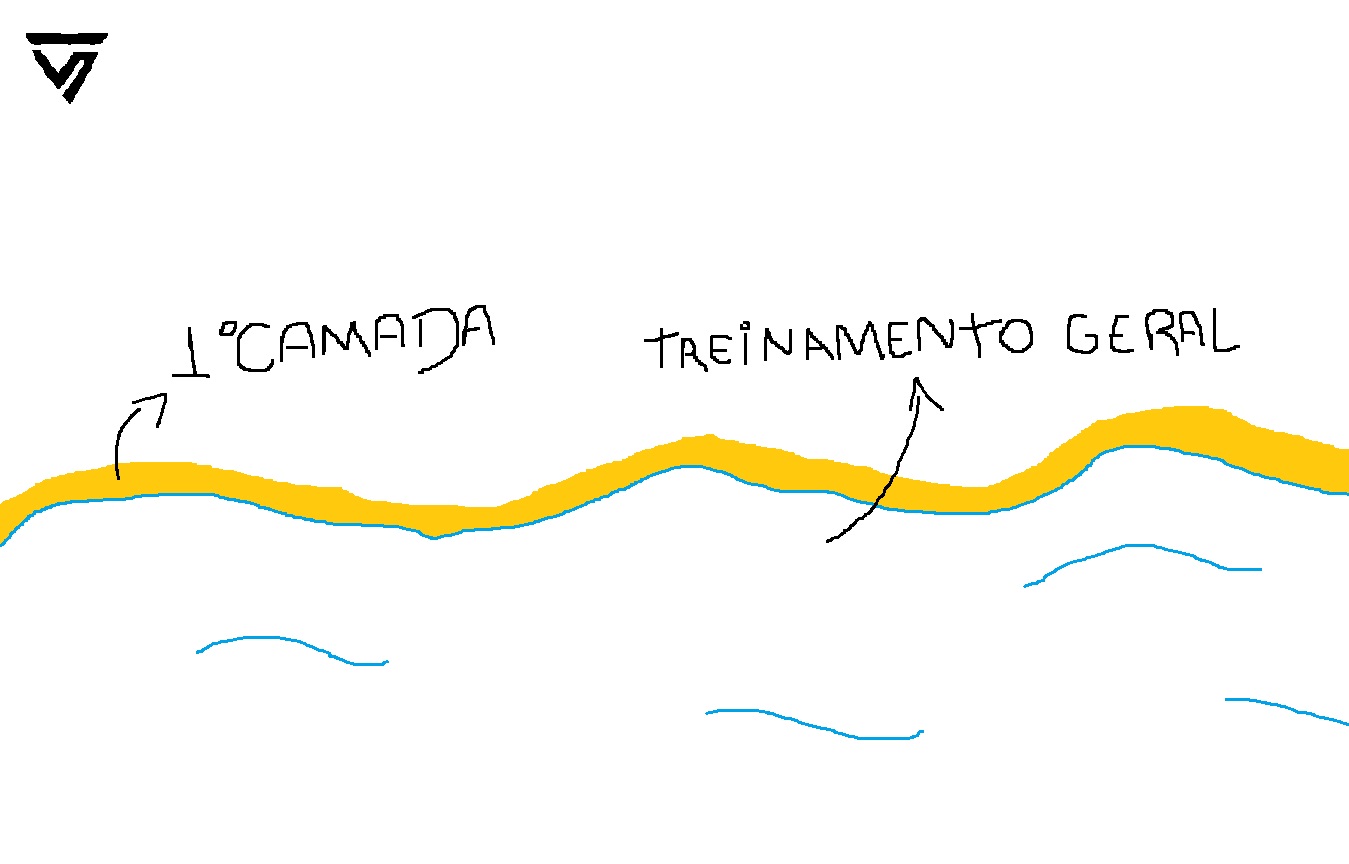 1°CAMADA
TREiNAMENTO GERAL